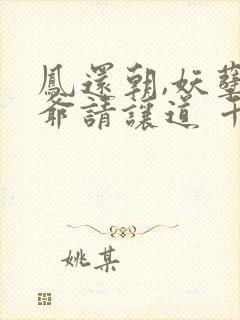 鳳還朝,妖孽
爺請讓道 千
姚某